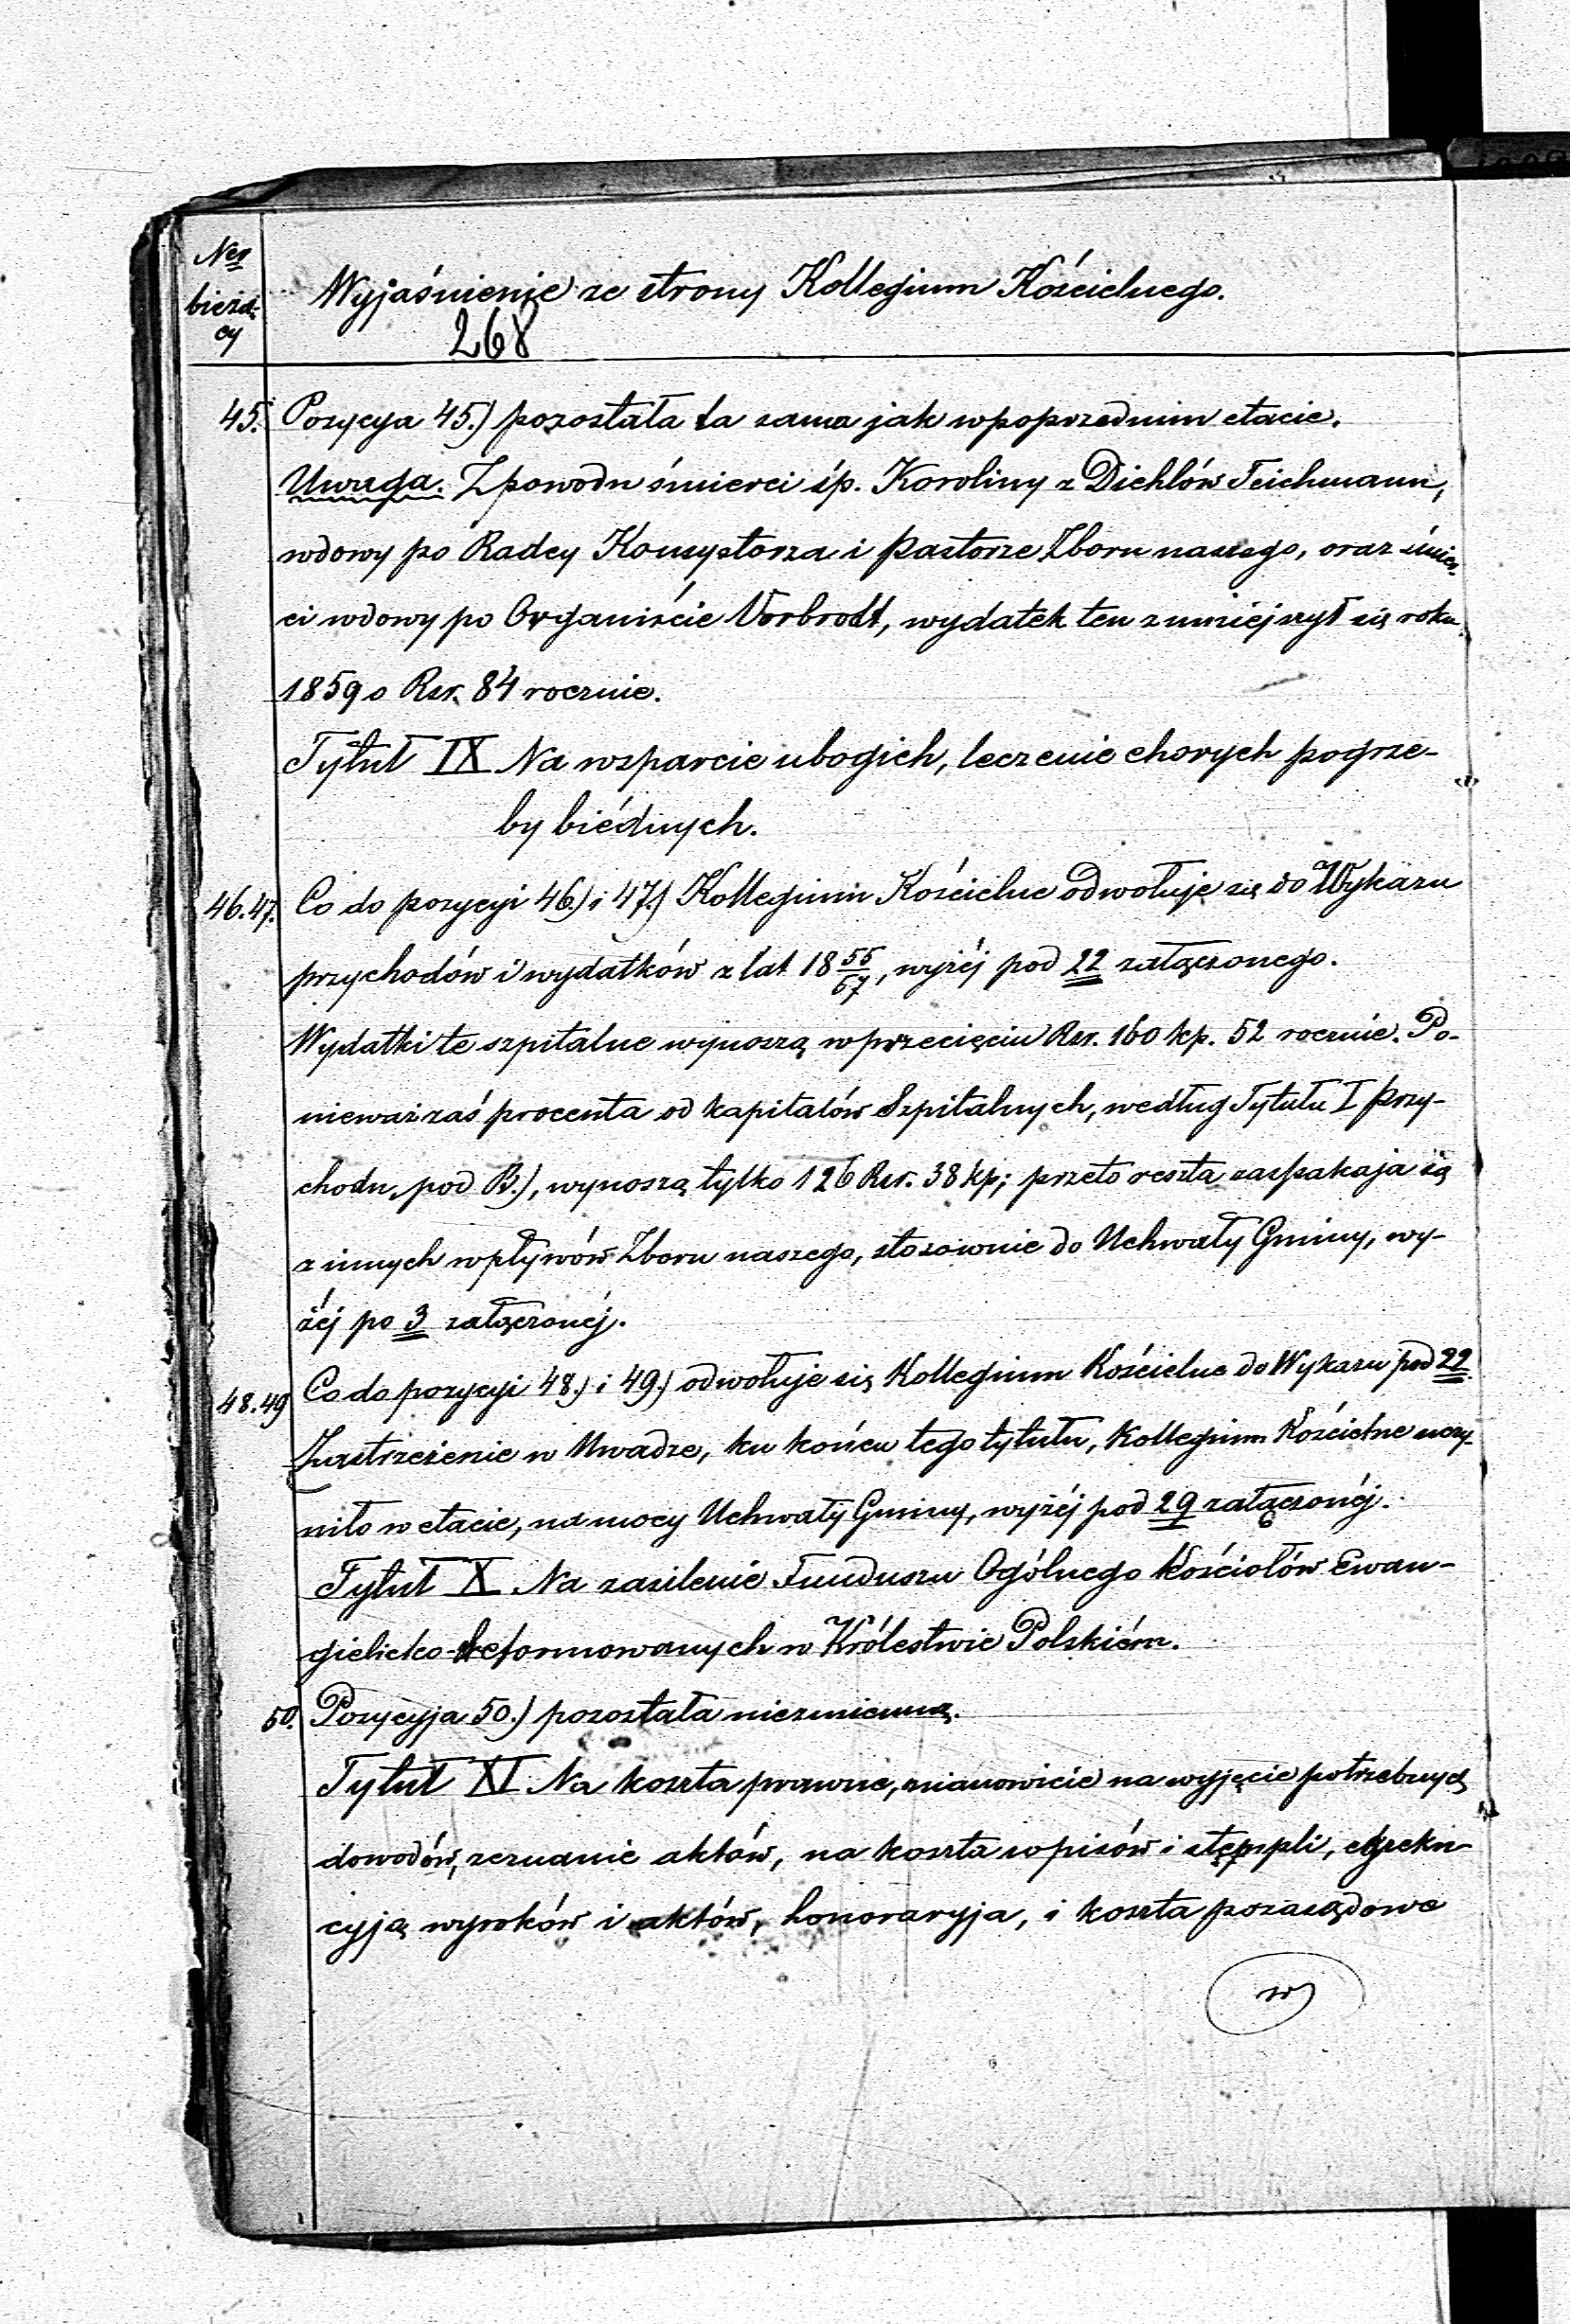 Ner
bieżą-
cy
Wyjaśnienie ze strony Kollegium Kościelnego.
268
45. Pozycya 45.) pozostała ta sama jak w poprzednim etacie.
Uwaga. Z powodu śmierci śp. Karoliny z Diehlów Teichmann,
wdowy po Radcy Konsystorza i Pastorze Zboru naszego, oraz śmier-
ci wdowy po Organiście Vorbrodt, wydatek ten zmniejszył się roku
1859 o Rsr. 84 rocznie.
Tytuł IX Na wsparcie ubogich, leczenie chorych pogrze-
by biédnych.
46.47. Co do pozycyi 46.) i 47.) Kollegium Kościelne odwołuje się do Wykazu
przychodów i wydatków z lat 18 55/67, wyżéj pod 22 załączonego.
Wydatki te szpitalne wynoszą w przecięciu Rsr. 160 kp. 52 rocznie. Po-
nieważ zaś procenta od kapitałów Szpitalnych, według Tytułu I Przy-
chodu, pod B.), wynoszą tylko 126 Rsr. 38 kp; przeto reszta zaspakaja się
z innych wpływów Zboru naszego, stosownie do Uchwały Gminy, wy-
żéj po 3 załączonéj.
48.49 Co do pozycyi 48.) i 49.) odwołuje się Kollegium Kościelne do Wykazu pod 22.
Zastrzeżenie w Uwadze, ku końcu tego tytułu, Kollegium Kościelne uczy-
niło w etacie, na mocy Uchwały Gminy, wyżéj pod 29 załączonéj.
Tytuł X Na zasilenie Funduszu Ogólnego Kościołów Ewan-
gielicko-Reformowanych w Królestwie Polskiém.
50. Pozycyja 50.) pozostała niezmienną.
Tytuł XI Na koszta prawne, mianowicie na wyjęcie potrzebnych
dowodów, zeznanie aktów, na koszta wpisów i stęppli, egzeku-
cyją wyroków i aktów, honoraryja, i koszta pozasądowe
w